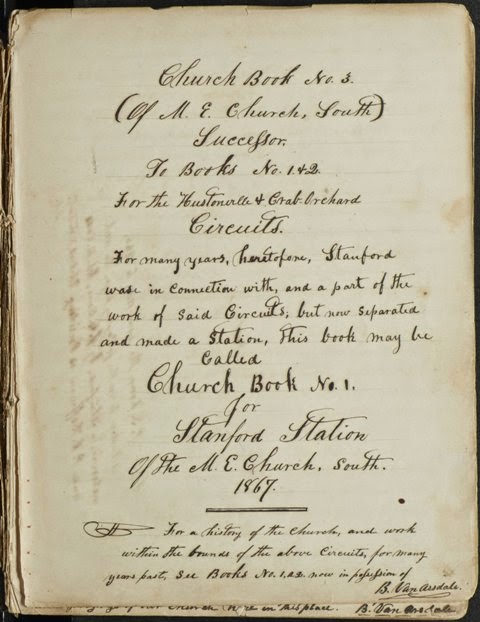 Church Book No. 3.
(Of M. E. Church, South)
Successor.
To Books No. 1 & 2
For the Hustonville & Crab-Orchard
Circuits.
For many years, heretofore, Stanford
wase in connection with, and a part of the
work of said Circuits; but now separated
and made a Station, this book may be
Called
Church Book No. 1.
for
Stanford Station
Of the M. E. Church, South.
1867.
For a history of the Church, and work
within the bounds of the above Circuits, for many
years past, see Books No. 1, & 2. now in possession of
B. Van Arsdale.
Church here in this place. B. Van Arsdale